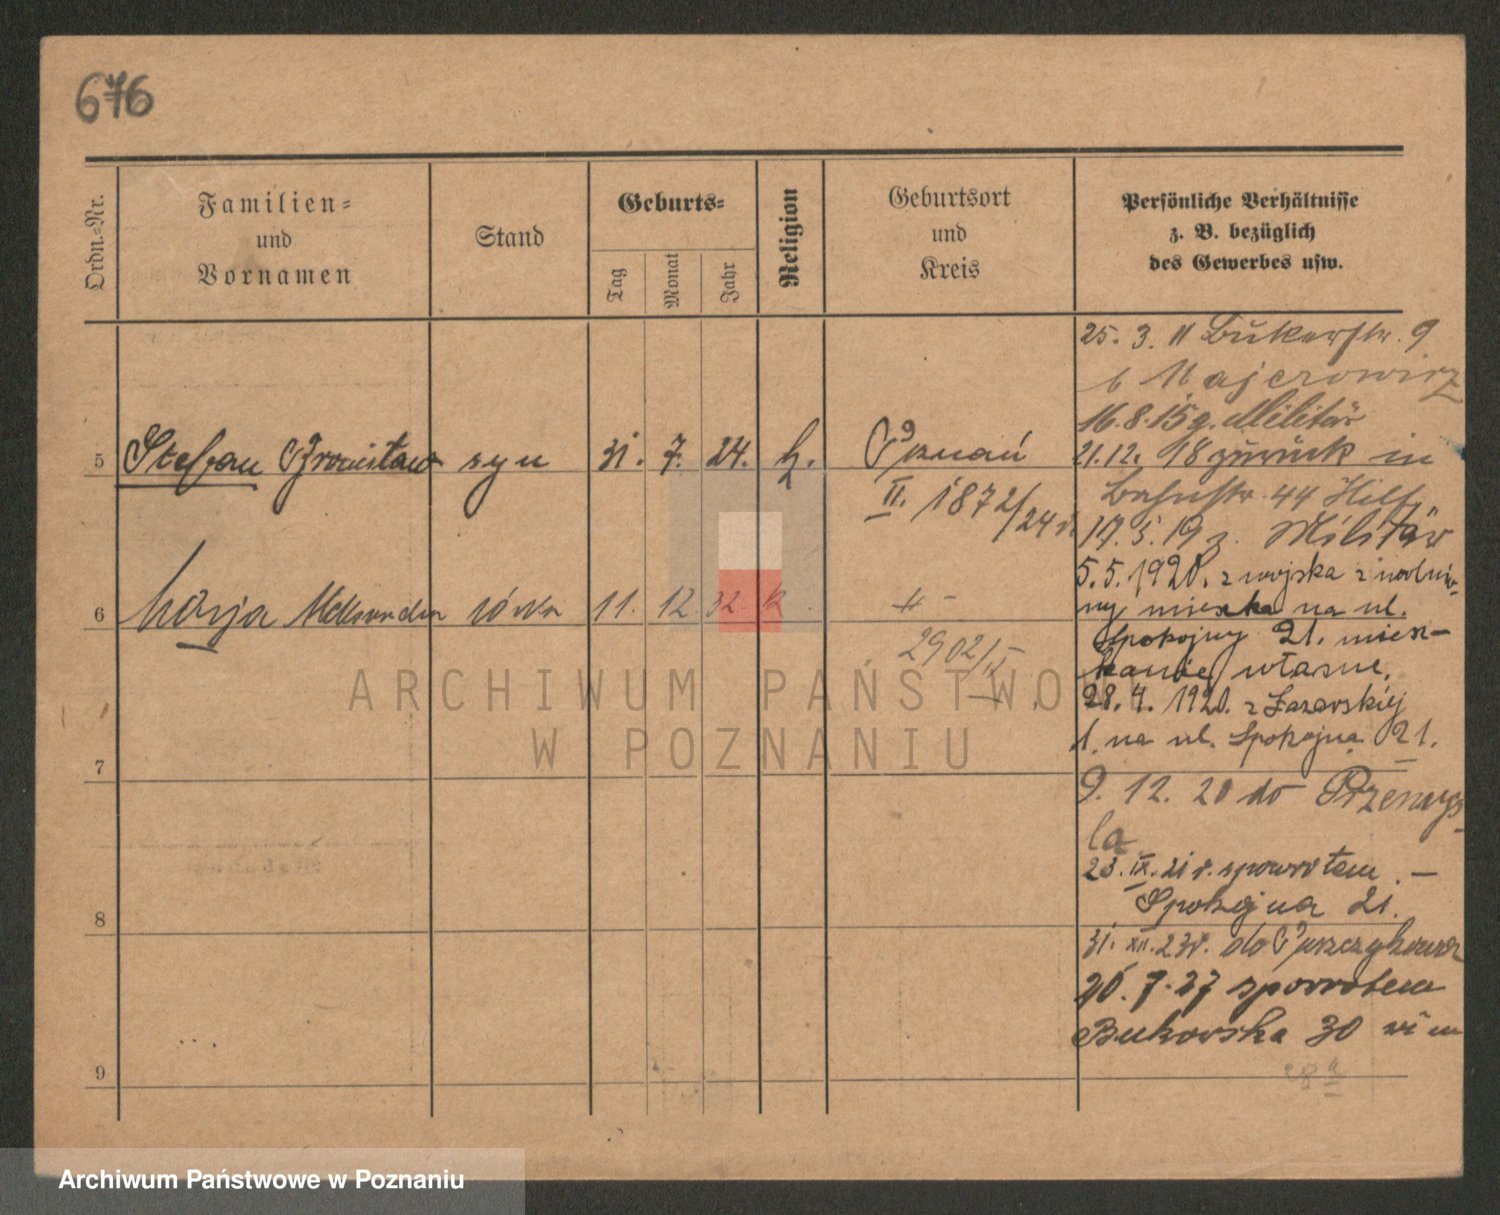 676
Ordn.-Nr.
Familien-
und
Vornamen
Stand
Geburts-
Tag
Monat
Jahr
Religion
Geburtsort
und
Kreis
Persönliche Verhältnisse
z. B. bezüglich
des Gewerbes usw.
25. 3. 11 Bukerstr. 9
b Majerowicz
16.8.15 g. Militär
5 Stefan Bronisław syn 31. 7. 24. k. Poznań 21.12. 18 zurück in
II. 1872/24
Bahnstr. 44
17. 5. 19 z. Militär
5. 5. 1920. z wojska
6 Marja Aleksandra córka 11. 12 32 k. -"- ny mieszka na ul.
2902/
Spokojny 21. miesz-
kanie własne.
28. 4. 1920. z Łazarskiej
1. na ul. Spokojna 21.
7
9. 12. 20 do Przemyś-
la
23. IX. 21 r. spowrotem. —
Spokojna 21.
8
31. XII. 23r. do Puszczykowa
26. 7. 27 spowrotem
Bukowska 30
9
ARCHIWUM PAŃSTWOWE
W POZNANIU
Archiwum Państwowe w Poznaniu